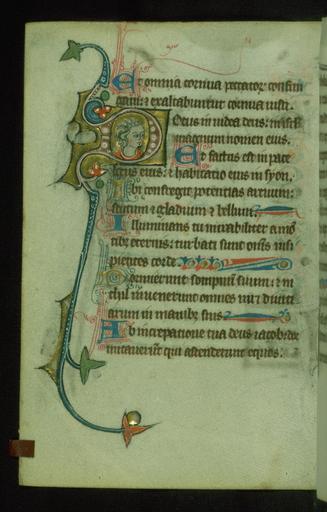 Et omnia cornua peccatorum confrin
gam: et exaltabuntur cornua iusti.
Notus in iudea deus: in isrl
magnum nomen eius.
Et factus est in pace
locus eius: et habitatio eius in syon.
Ibi confregit potentias arcuum:
scutum et gladium et bellum.
Illuminans tu mirabiliter a mon
tibus eternis: turbati sunt omnes insi
pientes corde.
Dormierunt sompnum suum: et ni
chil invenerunt omnes viri diviti
arum in manibus suis
Ab increpatione tua deus iacob: dor
mitaverunt qui ascenderunt equos.